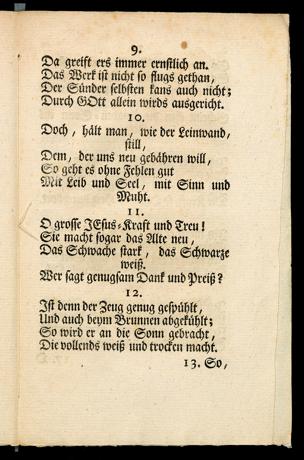 9.
Da greift ers immer ernstlich an.
Das Werk ist nicht so flugs gethan,
Der Sünder selbsten kans auch nicht;
Durch GOtt allein wirds ausgericht.
10.
Doch, hält man, wie der Leinwand,
still,
Dem, der uns neu gebähren will,
So geht es ohne Fehlen gut
Mit Leib und Seel, mit Sinn und
Muht.
11.
O grosse JEsus-Kraft und Treu!
Sie macht sogar das Alte neu,
Das Schwache stark, das Schwarze
weiß.
Wer sagt genugsam Dank und Preiß?
12.
Ist denn der Zeug genug gespühlt,
Und auch beym Brunnen abgekühlt;
So wird er an die Sonn gebracht,
Die vollends weiß und trocken macht.
13. So,